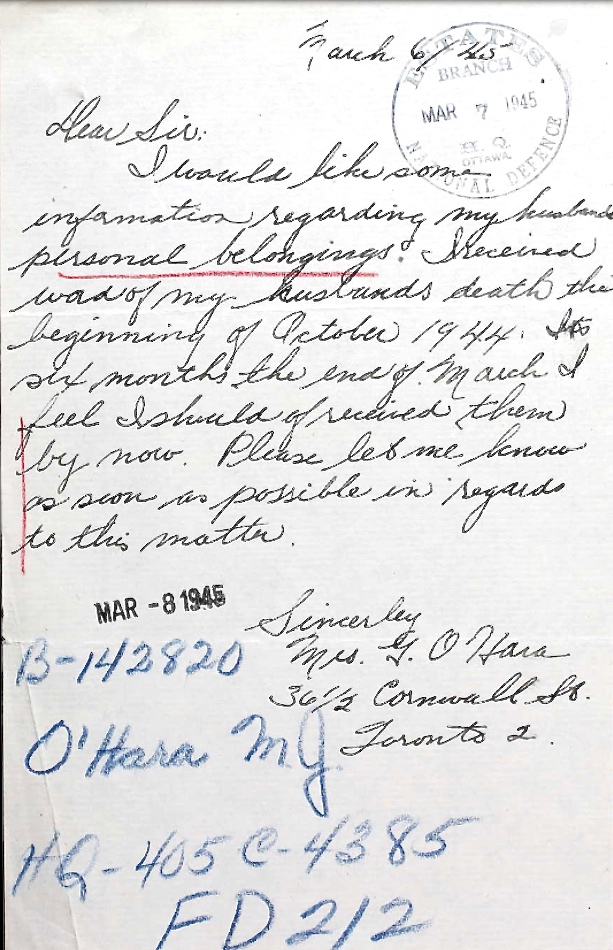 March 6/45
ESTATES
BRANCH
MAR 7 1945
H. Q.
OTTAWA
NATIONAL DEFENCE
Dear Sir:
I would like some
information regarding my husband
personal belongings. I received
word of my husbands death the
beginning of October 1944. Its
six months the end of March I
feel I should of received them
by now. Please let me know
as soon as possible in regards
to this matter.
MAR -8 1945
Sincerley
Mrs. G. O'Hara
36 1/2 Cornwall St.
Toronto 2.
B-142820
O'Hara M.J.
HQ-405 C-4385
FD 212